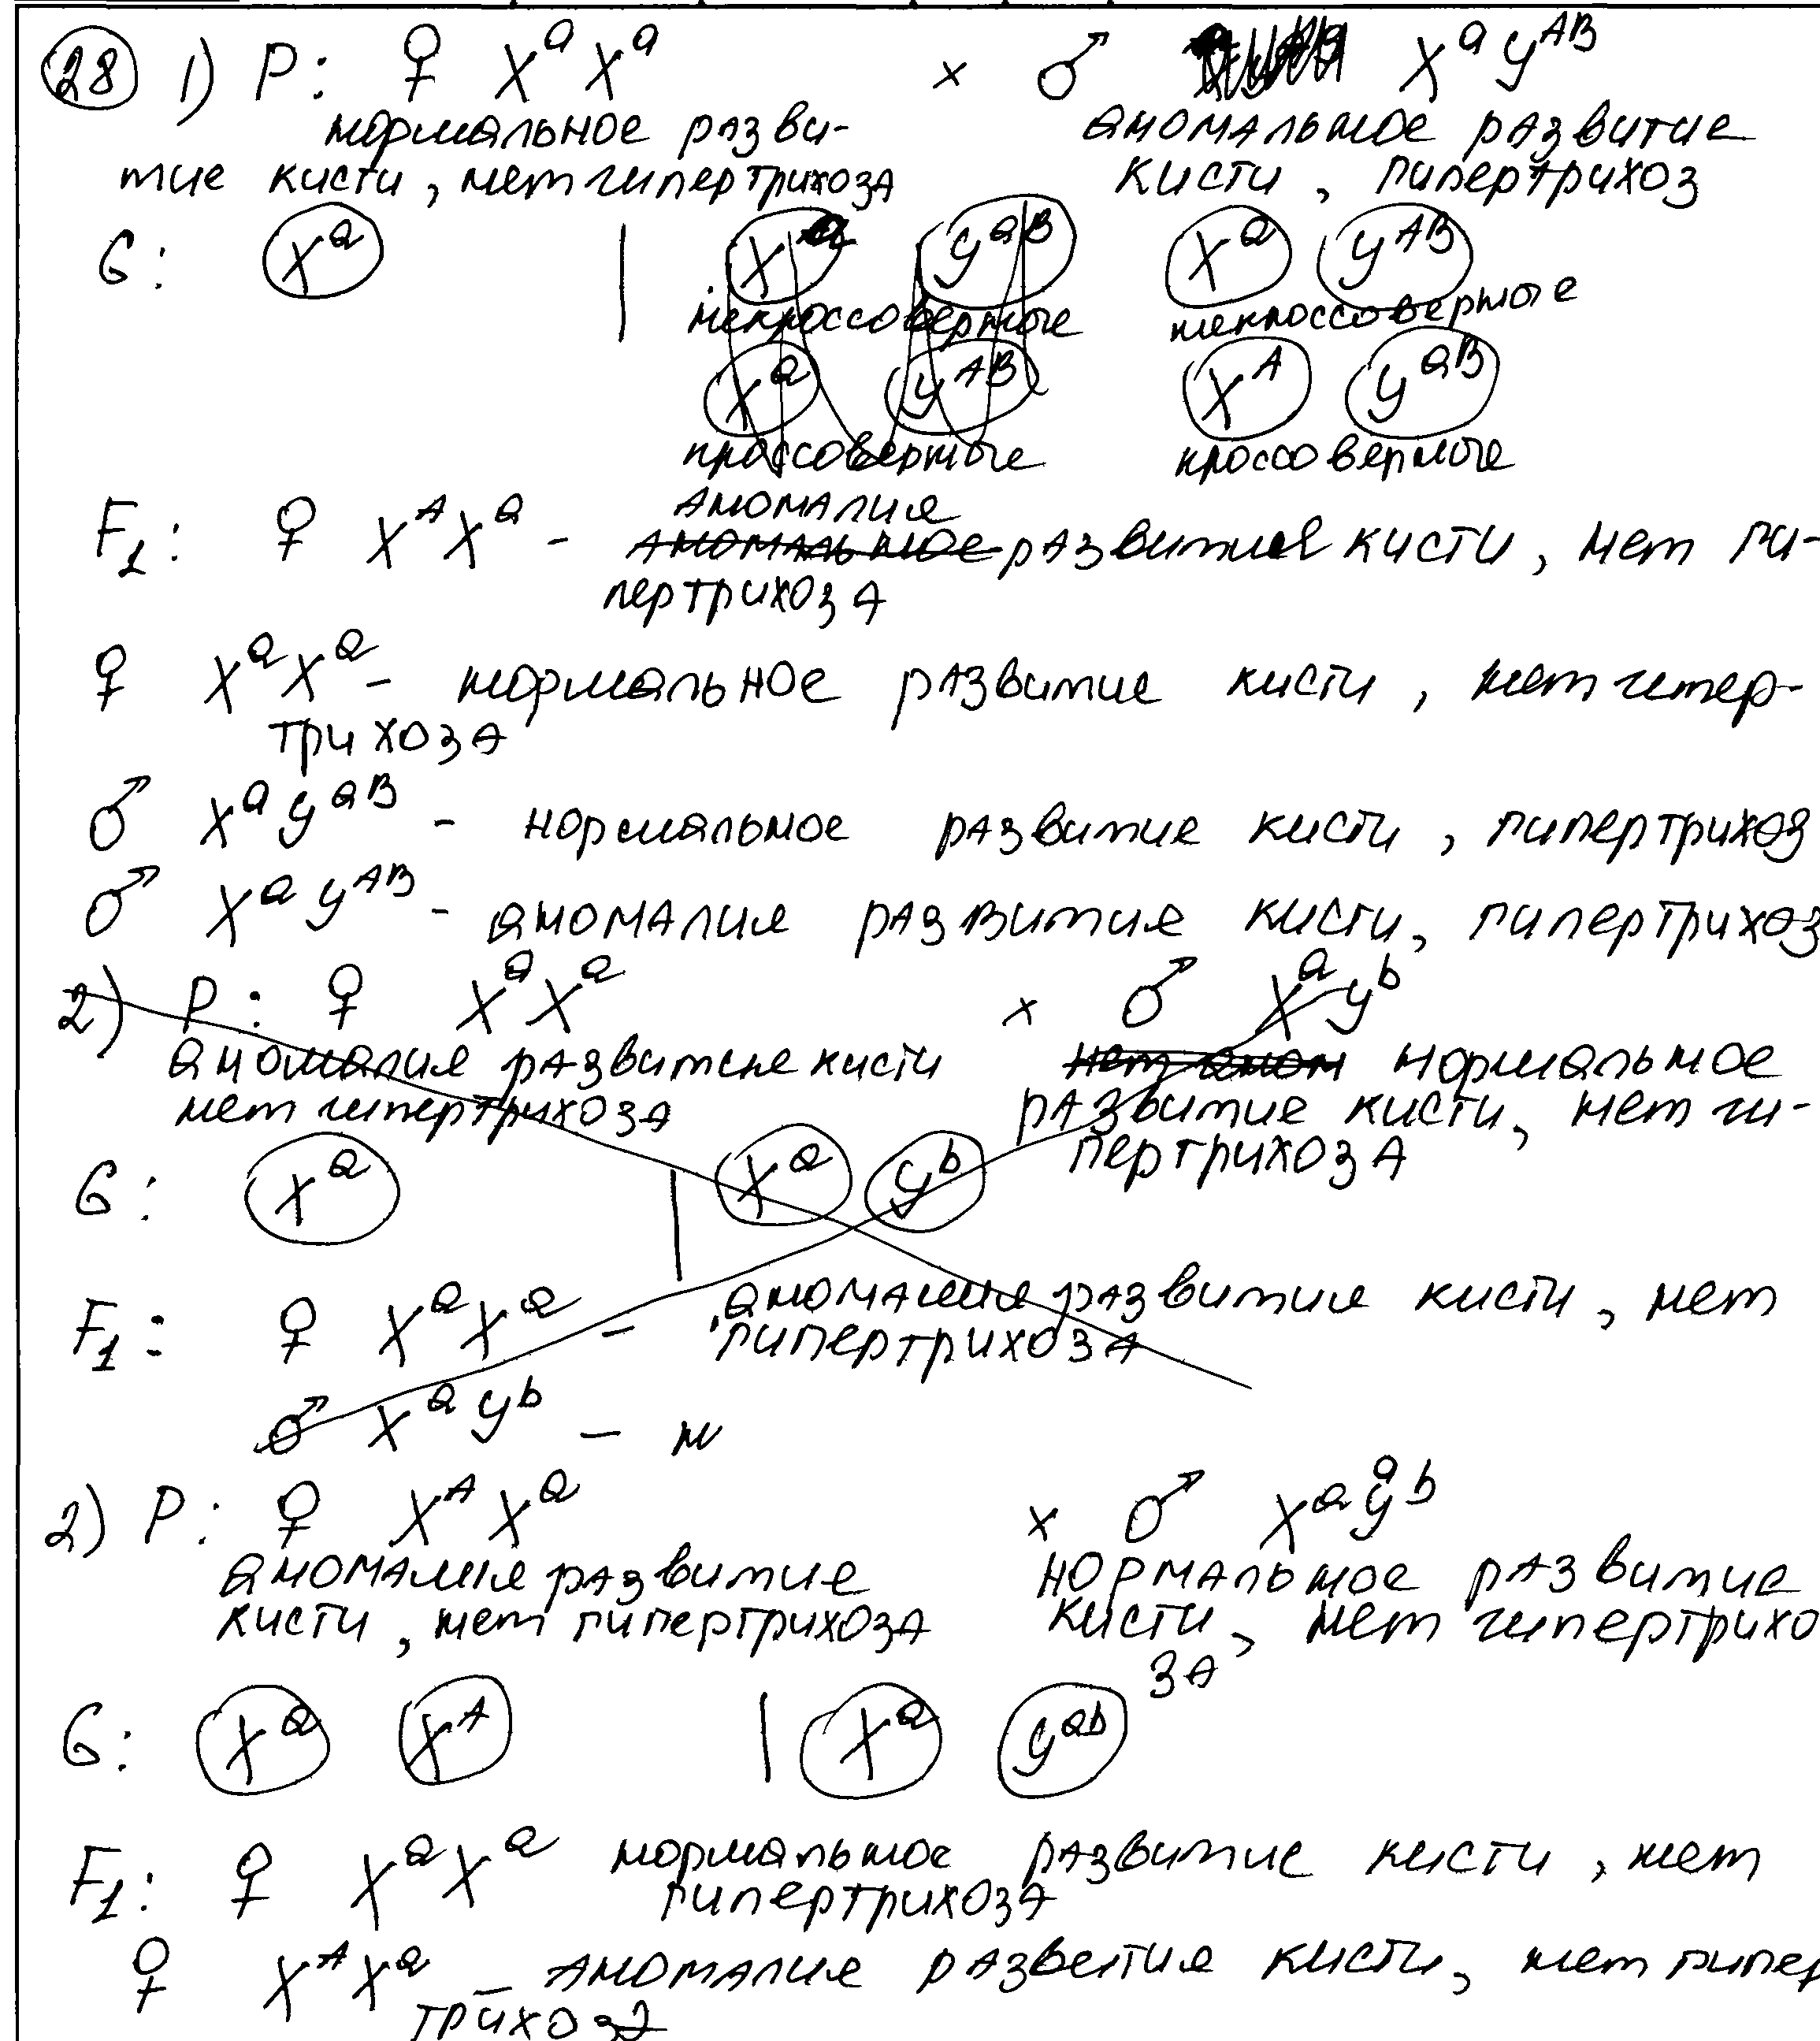 28 1) P: ♀ XᵃXᵃ × ♂ XᵃYᴬᴮ
нормальное разви- аномальное развитие
тие кисти, нет гипертрихоза кисти, гипертрихоз
G: Xᵃ | Xᵃ Yᵃᴮ Xᵃ Yᴬᴮ
некроссоверные некроссоверные
Xᵃ Yᴬᴮ Xᴬ Yᵃᴮ
кроссоверные кроссоверные
аномалия
F₁: ♀ XᴬXᵃ - аномальное развития кисти, нет ги-
пертрихоза
♀ XᵃXᵃ - нормальное развитие кисти, нет гипер-
трихоза
♂ XᵃYᵃᴮ - нормальное развитие кисти, гипертрихоз
♂ XᵃYᴬᴮ - аномалия развития кисти, гипертрихоз
2) P: ♀ XᵃXᵃ × ♂ XᵃYᵇ
аномалия развития кисти нет аном нормальное
нет гипертрихоза развитие кисти, нет ги-
пертрихоза
G: Xᵃ | Xᵃ Yᵇ
F₁: ♀ XᵃXᵃ - аномалия развития кисти, нет
гипертрихоза
♂ XᵃYᵇ - н
2) P: ♀ XᴬXᵃ × ♂ XᵃYᵃᵇ
аномалия развитие нормальное развитие
кисти, нет гипертрихоза кисти, нет гипертрихо
за
G: Xᵃ Xᴬ | Xᵃ Yᵃᵇ
F₁: ♀ XᵃXᵃ нормальное развитие кисти, нет
гипертрихоза
♀ XᴬXᵃ - аномалия развития кисти, нет гипер
трихоза